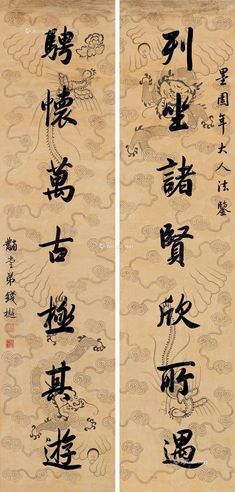 星園年大人法鑒
列坐諸賢欣所遇
騁懷萬古極其遊
黼堂弟錢樾